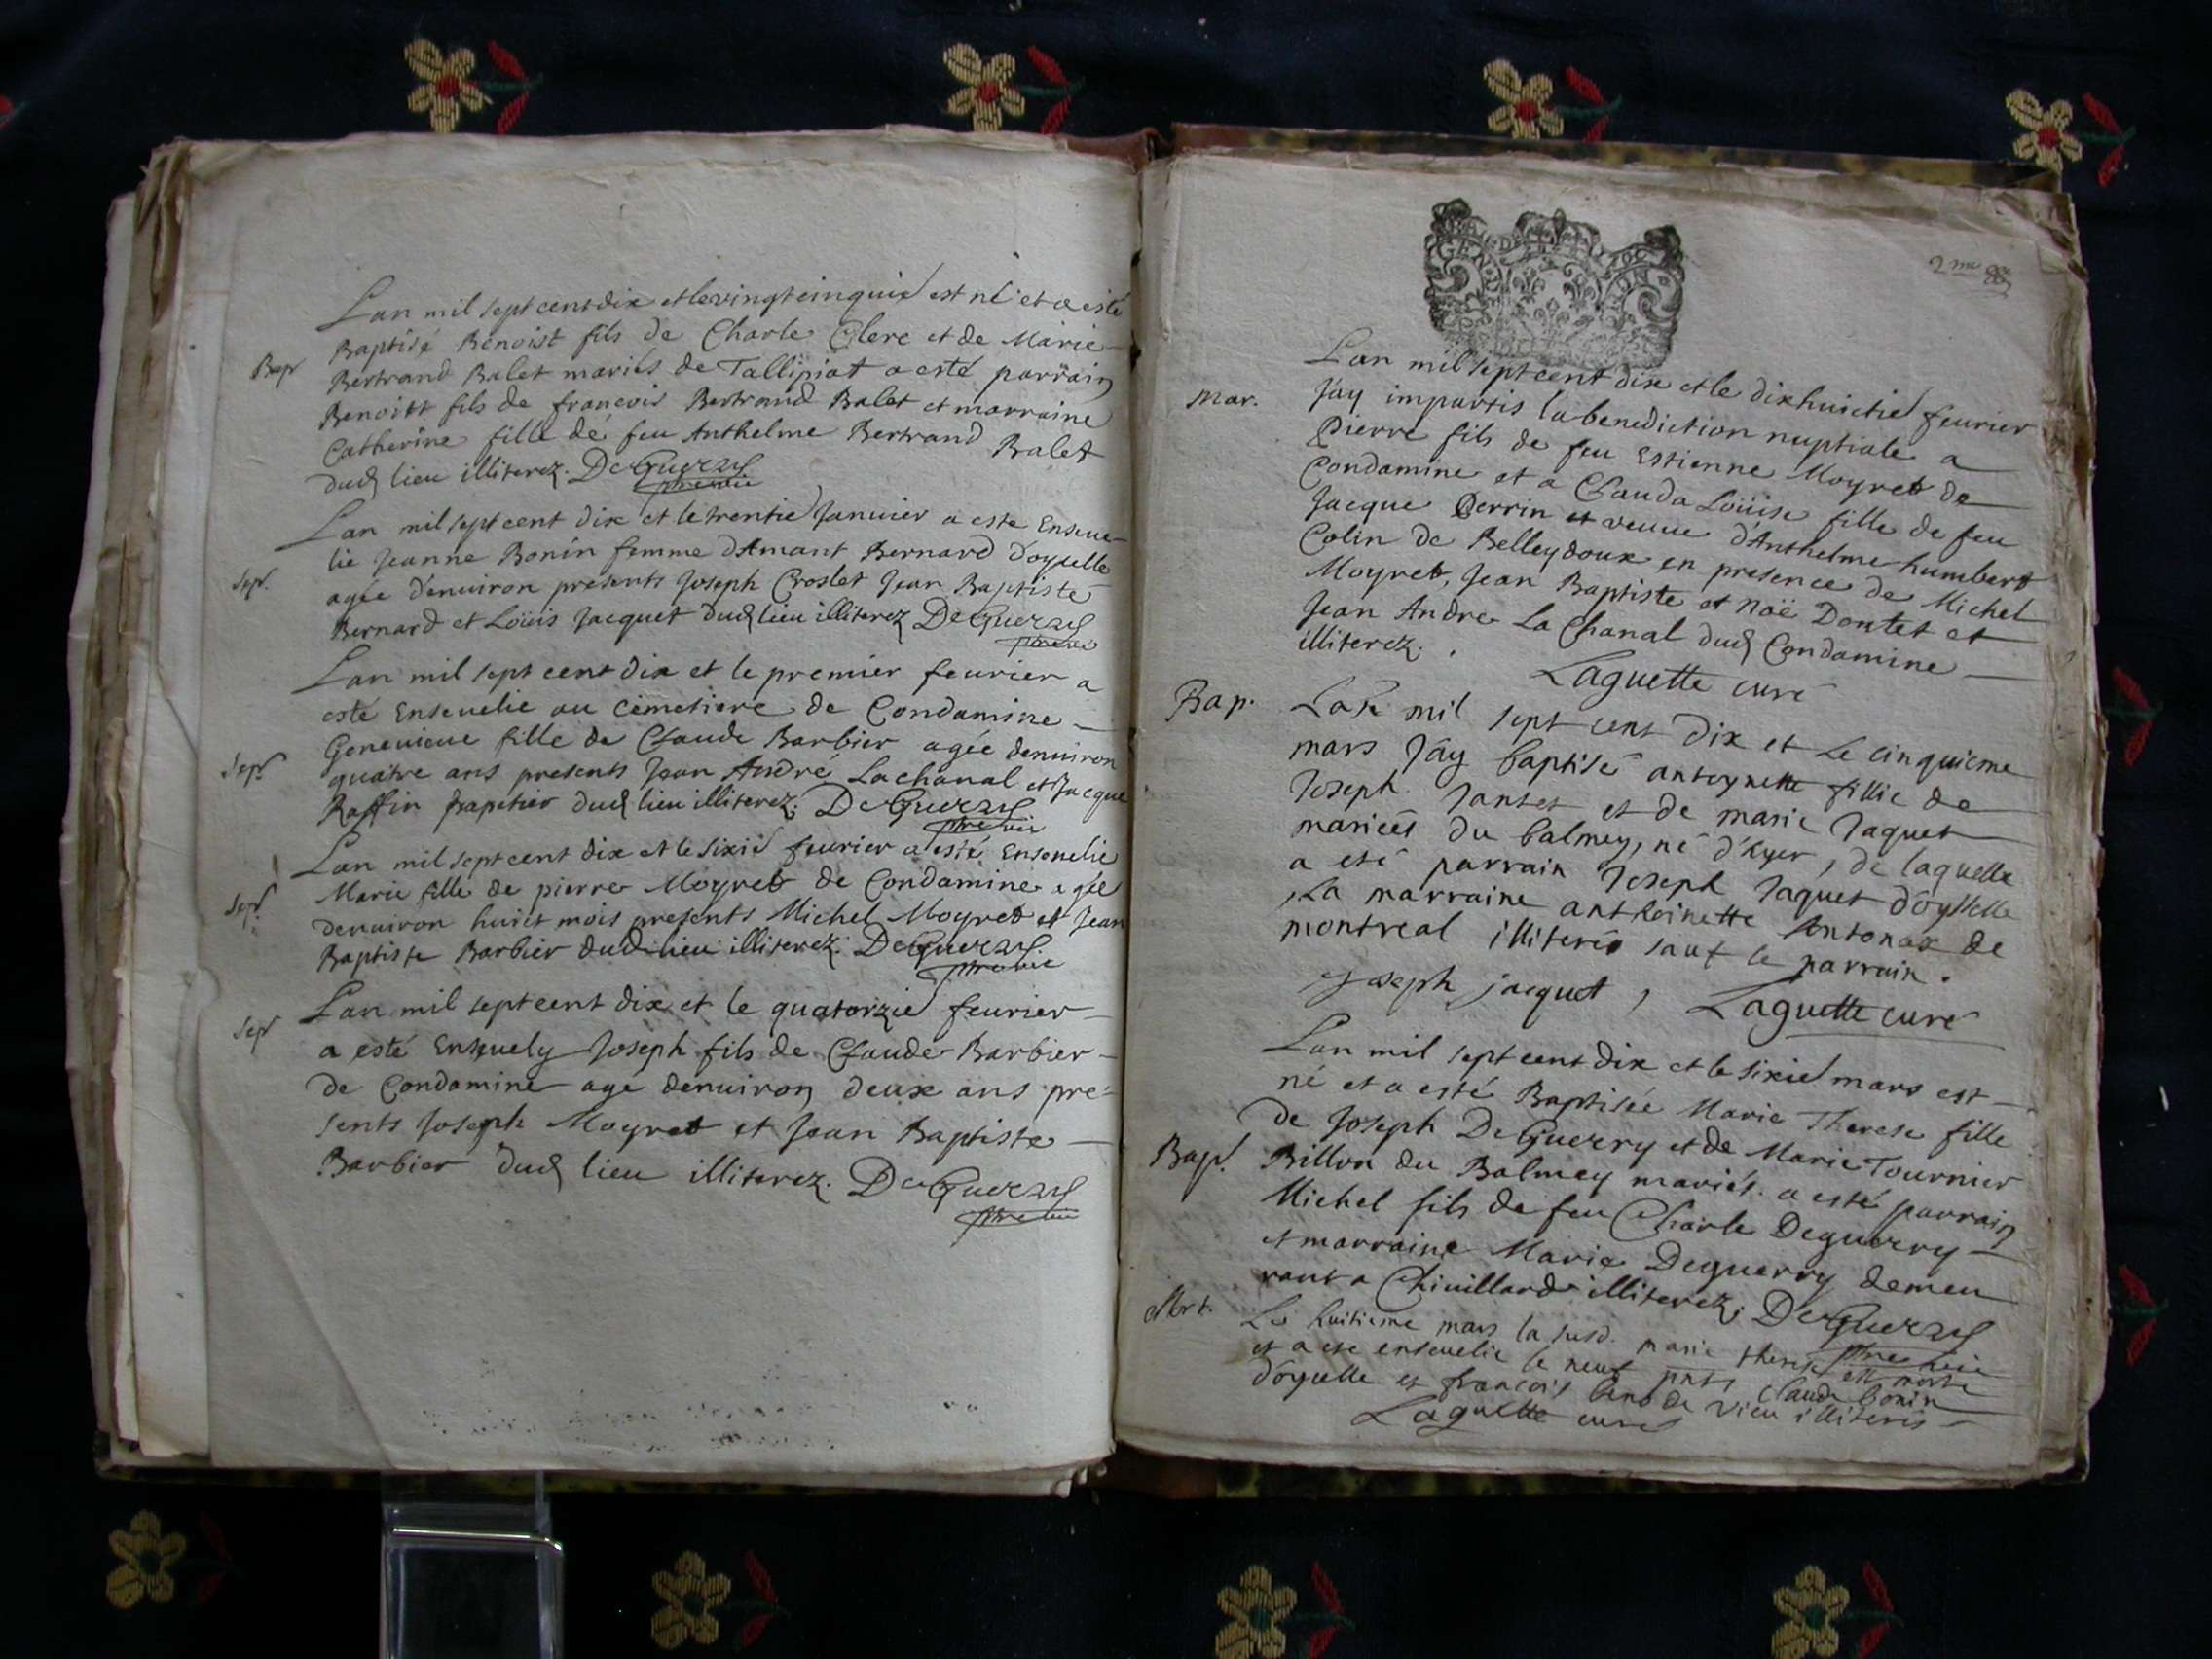 Lan mil sept cent dix et le vingt cinquie est né et a esté
Bap
Baptisé Benoist fils de Charle Clerc et de Marie
Bertrand Balet mariés de Tallipiat a esté parrain
Benoist fils de francois Bertrand Balet et marraine
Catherine fille de feu Anthelme Bertrand Balet
dud lieu illiterez. DeGuerry
ptre vic
Lan mil sept cent dix et le trentie Janvier a este Enseue
lie Jeanne Bonin femme dAmant Bernard d'oyselle
Sep.
agée d'enuiron presents Joseph Croslet Jean Baptiste
Bernard et Loüis Jacquet dud lieu illiterez DeGuerry
ptre vic
Lan mil sept cent dix et le premier feurier a
esté Enseuelie au cimetiere de Condamine
Geneuieue fille de Claude Barbier agée denuiron
Sepr
quatre ans presents Jean André Lachanal et Jacque
Raffin papetier dud lieu illiterez. DeGuerry
ptre vic
Lan mil sept cent dix et le sixie feurier a esté Enseuelie
Marie fille de pierre Moyret de Condamine agée
Sepr
denuiron huict mois presents Michel Moyret et Jean
Baptiste Barbier dud lieu illiterez. DeGuerry
ptre vic
Lan mil sept cent dix et le quatorzie feurier
Sepr
a esté Enseuely Joseph fils de Claude Barbier
de Condamine age denuiron deux ans pre
sents Joseph Moyret et Jean Baptiste
Barbier dud lieu illiterez. DeGuerry
ptre vic
2me
Lan mil sept cent dix et le dixhuictie feurier
Mar.
Jay impartis la benediction nuptiale a
Pierre fils de feu Estienne Moyret de
Condamine et a Clauda Loüise fille de feu
Jacque Perrin et veuue d'Anthelme humbert
Colin de Belleydoux en presence de Michel
Moyret, Jean Baptiste et Noë Dontet et
Jean Andre La Chanal dud Condamine
illiterez.
Laguette curé
Bap.
Lan mil sept cent dix et Le cinquieme
mars Jay baptisé antoynette fillie de
Joseph Jantet et de marie Jaquet
mariéés du balmey, né d'hyer, de laquelle
a eté parrain Joseph Jaquet d'oysselle
La marraine anthoinette Antonax de
montreal illiterés sauf le parrain.
Joseph jacquet, Laguette curé
Lan mil sept cent dix et le sixie mars est
né et a esté Baptisée Marie Therese fille
de Joseph DeGuerry et de Marie Tournier
Bapt.
Billon du Balmey mariés. a esté parrain
Michel fils de feu Charle Deguerry
et marraine Marie Deguerry demeu
rant a Chiuillard illiterez. DeGuerry
ptre vic
Mort.
Le huitieme mars la susd. marie therese est morte
et a ete enseuelie le neuf pnts Claude bonin
d'oyselle et francois de Vieu illiterés
Laguette curé